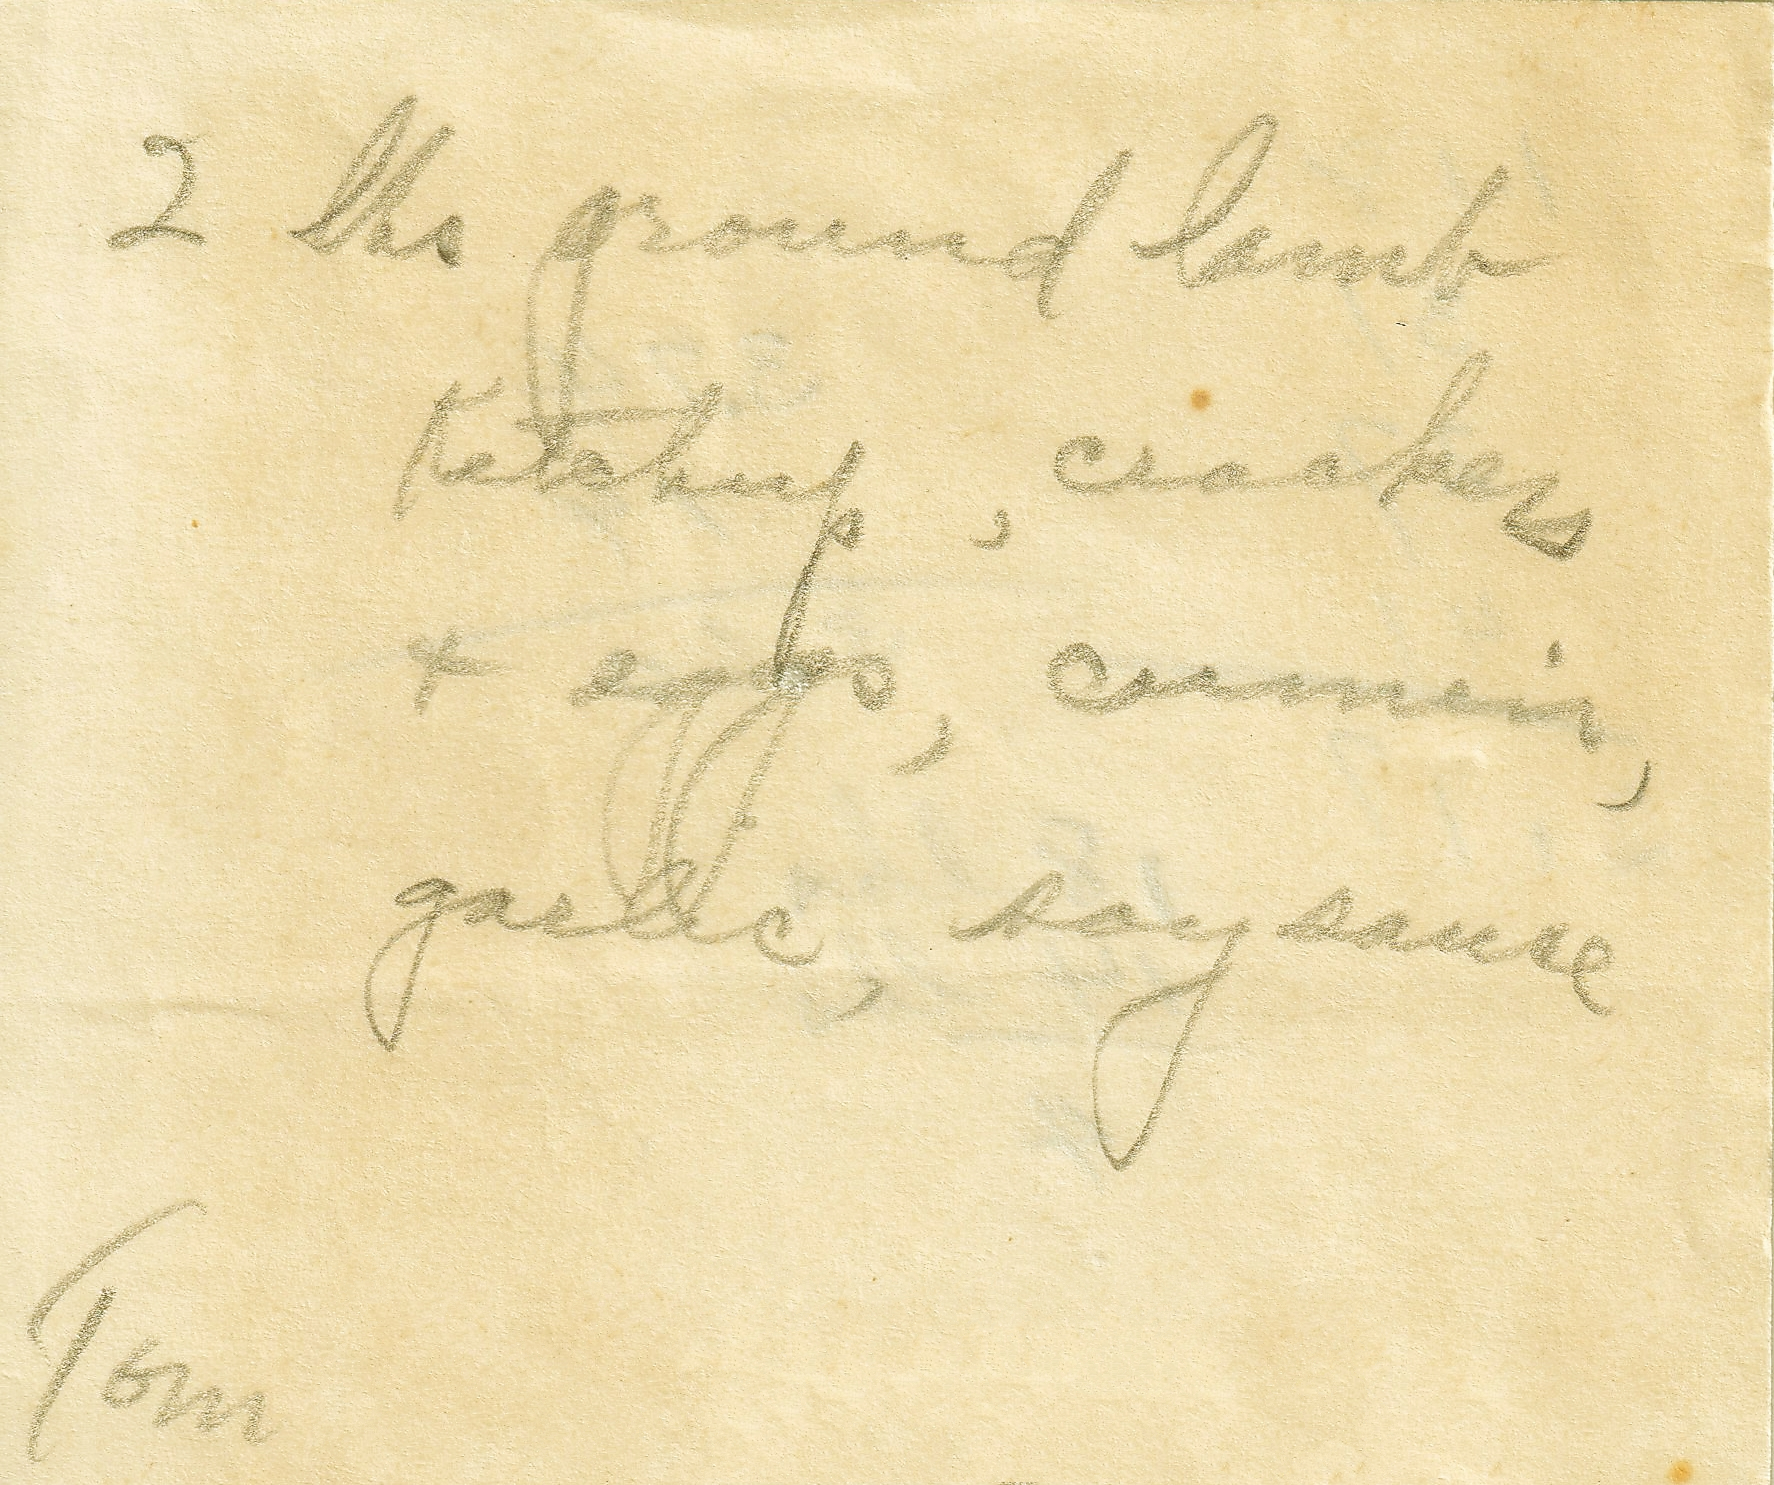 2 lbs ground lamb
Ketchup, crackers
+ eggs, cummin,
garlic, soy sauce
Tom